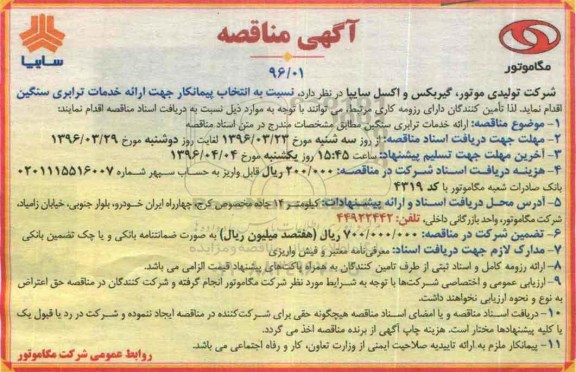 آگهی مناقصه
۹۶/۰۱
سایپا
مگاموتور
شرکت تولیدی موتور، گیربکس و اکسل سایپا در نظر دارد، نسبت به انتخاب پیمانکار جهت ارائه خدمات ترابری سنگین
اقدام نماید. لذا تأمین کنندگان دارای رزومه کاری مرتبط، می‌توانند با توجه به موارد ذیل نسبت به دریافت اسناد مناقصه اقدام نمایند:
۱- موضوع مناقصه: ارائه خدمات ترابری سنگین مطابق مشخصات مندرج در متن اسناد مناقصه
۲- مهلت جهت دریافت اسناد مناقصه: از روز سه شنبه مورخ ۱۳۹۶/۰۳/۲۳ لغایت روز دوشنبه مورخ ۱۳۹۶/۰۳/۲۹
۳- آخرین مهلت جهت تسلیم پیشنهاد: ساعت ۱۵:۴۵ روز یکشنبه مورخ ۱۳۹۶/۰۴/۰۴
۴- هزینه دریافت اسناد شرکت در مناقصه: ۲۰۰/۰۰۰ ریال قابل واریز به حساب سپهر شماره ۰۲۰۱۱۱۵۵۱۶۰۰۷
بانک صادرات شعبه مگاموتور با کد ۴۳۱۹
۵- آدرس محل دریافت اسناد و ارائه پیشنهادات: کیلومتر ۱۴ جاده مخصوص کرج، چهارراه ایران خودرو، بلوار جنوبی، خیابان زامیاد،
شرکت مگاموتور، واحد بازرگانی داخلی، تلفن: ۴۴۹۲۲۴۴۲
۶- تضمین شرکت در مناقصه: ۷۰۰/۰۰۰/۰۰۰ ریال (هفتصد میلیون ریال) به صورت ضمانتنامه بانکی و یا چک تضمین بانکی
۷- مدارک لازم جهت دریافت اسناد: معرفی‌نامه معتبر و فیش واریزی
۸- ارائه رزومه کامل و اسناد ثبتی از طرف تامین کنندگان به همراه پاکت‌های پیشنهاد قیمت الزامی می باشد.
۹- ارزیابی عمومی و اختصاصی شرکت‌ها با توجه به شرایط مورد نظر شرکت مگاموتور انجام گرفته و شرکت کنندگان در مناقصه حق اعتراض
به نوع و نحوه ارزیابی نخواهند داشت.
۱۰- دریافت اسناد مناقصه و یا امضای اسناد مناقصه هیچگونه حقی برای شرکت‌کننده در مناقصه ایجاد ننموده و شرکت در رد یا قبول یک
یا کلیه پیشنهادها مختار است. هزینه چاپ آگهی از برنده مناقصه اخذ می گردد.
۱۱- پیمانکار ملزم به ارائه تاییدیه صلاحیت ایمنی از وزارت تعاون، کار و رفاه اجتماعی می باشد.
روابط عمومی شرکت مگاموتور